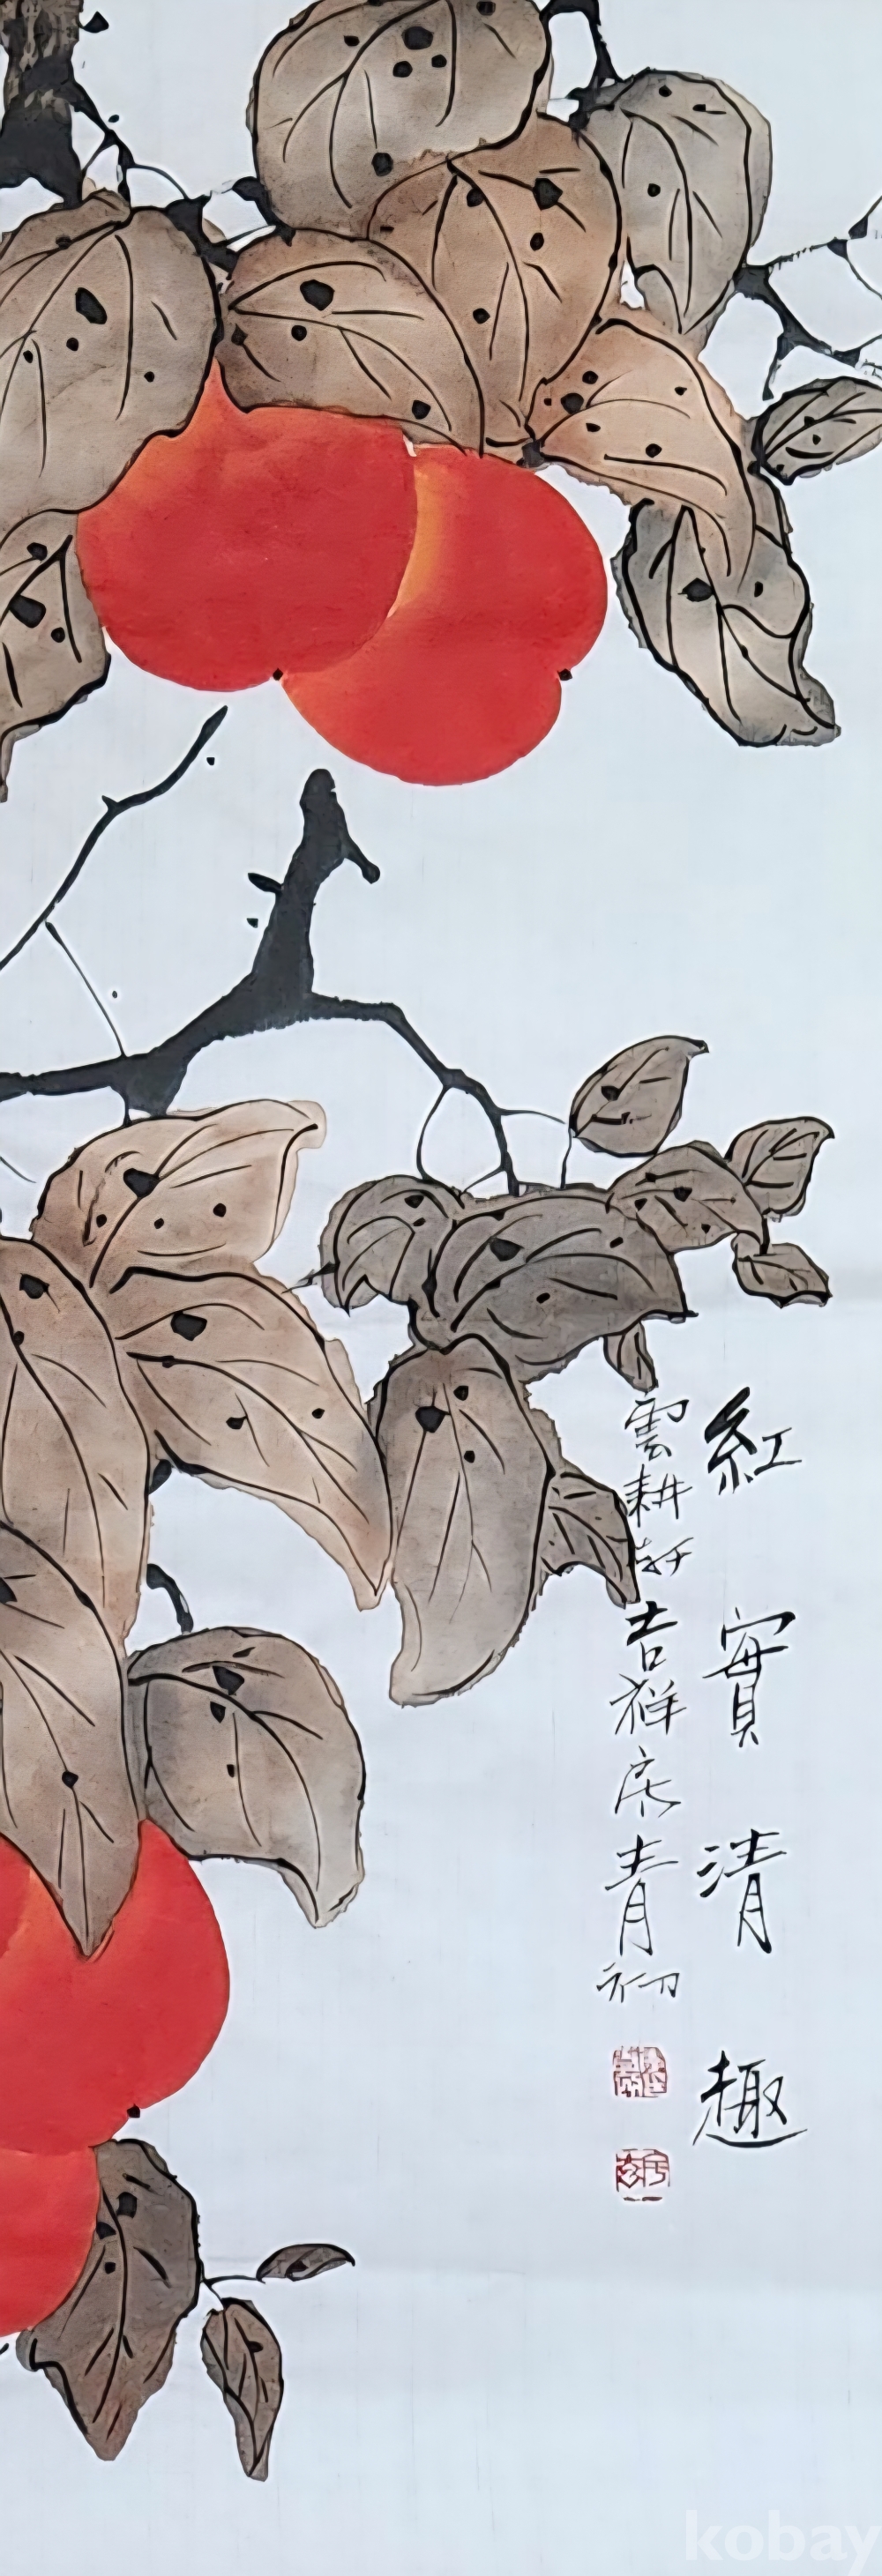 紅實清趣
雲耕軒吉祥 青初
kobay